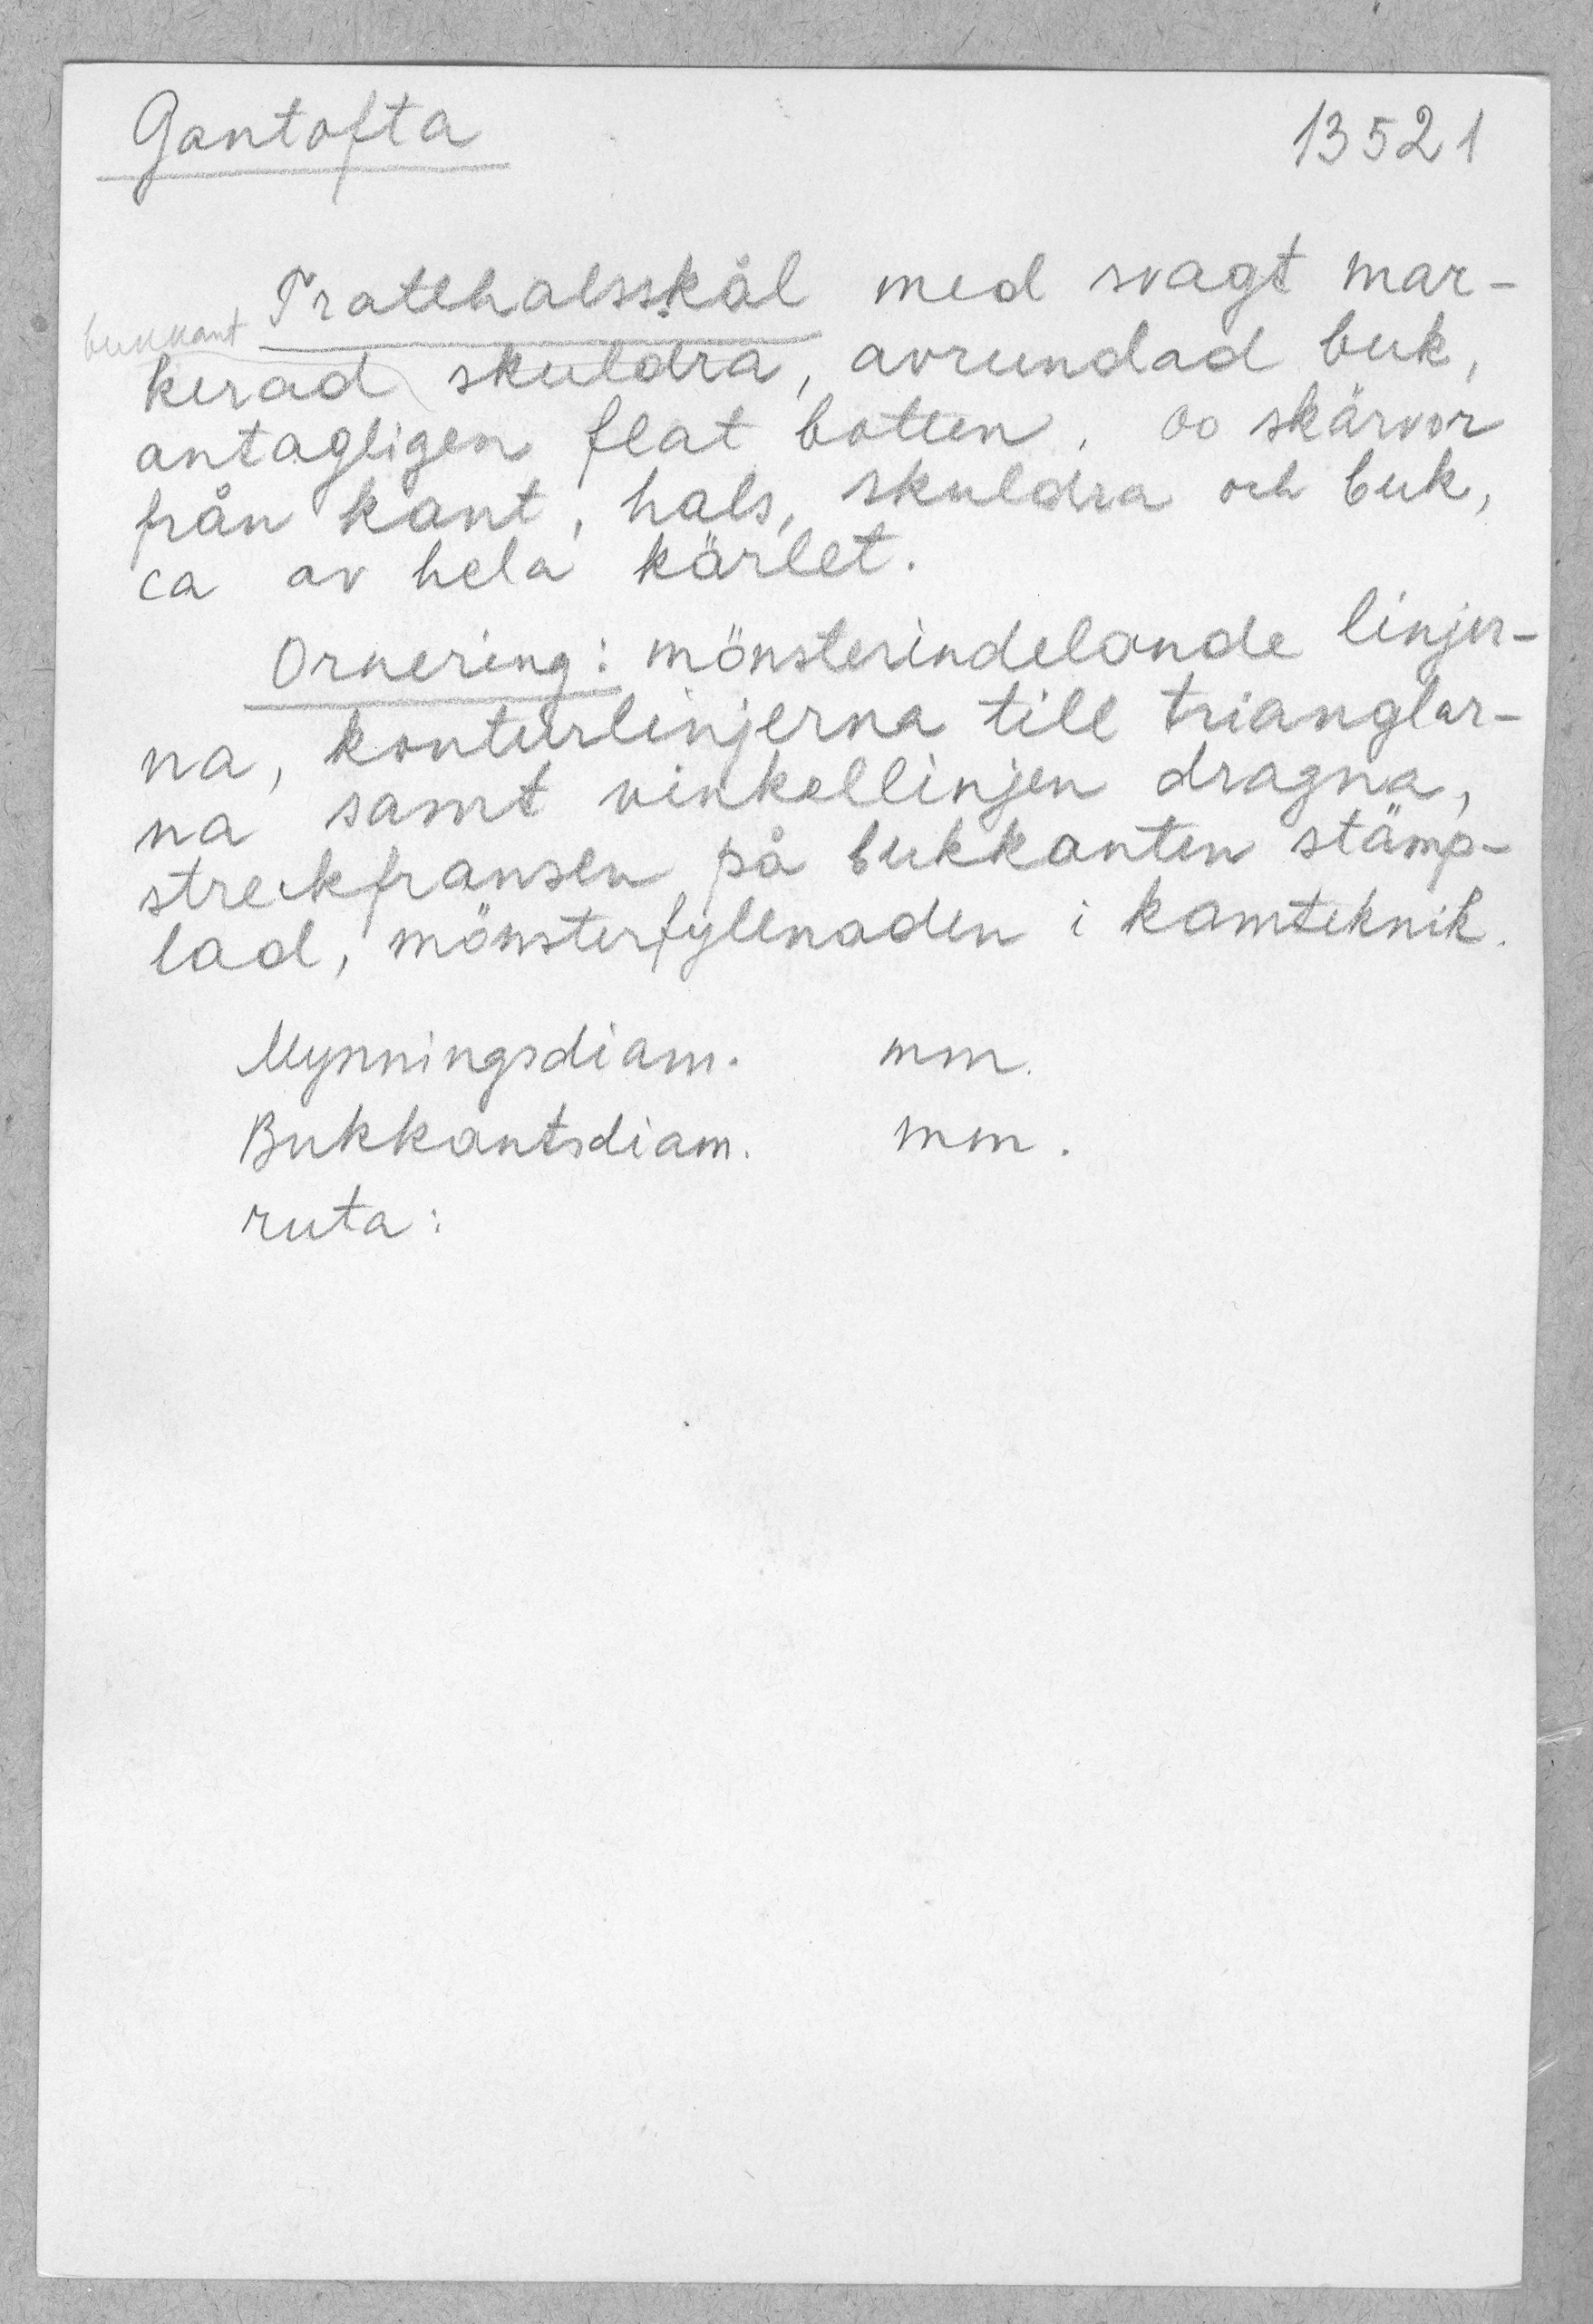 Gantofta 13521
Trattehalsskål med svagt mar-
bukkant
kerad skuldra, avrundad buk,
antagligen flat botten. oo skärvor
från kant, hals, skuldra och buk,
ca av hela kärlet.
Ornering: mönsterindelande linjer-
na, konturlinjerna till trianglar-
na samt vinkellinjen dragna,
streckfransen på bukkanten stämp-
lad, mönsterfyllnaden i kamteknik.
Mynningsdiam. mm.
Bukkantsdiam. mm.
ruta: